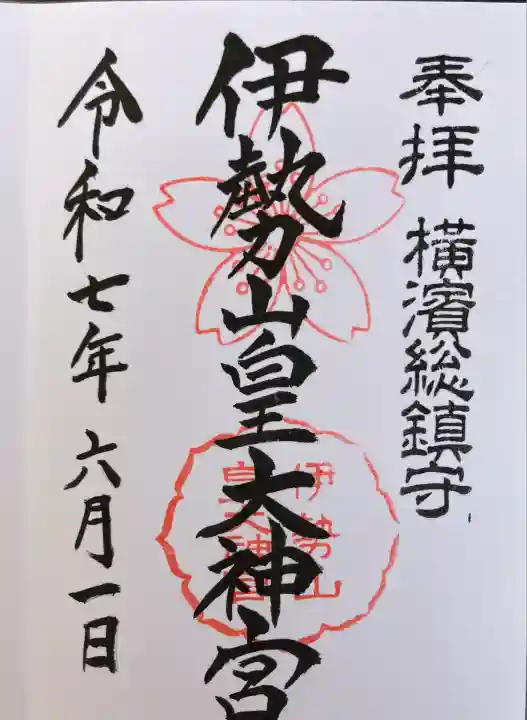 奉拝 横濱総鎮守
伊勢山皇大神宮
伊勢山
皇大神宮
令和七年六月一日